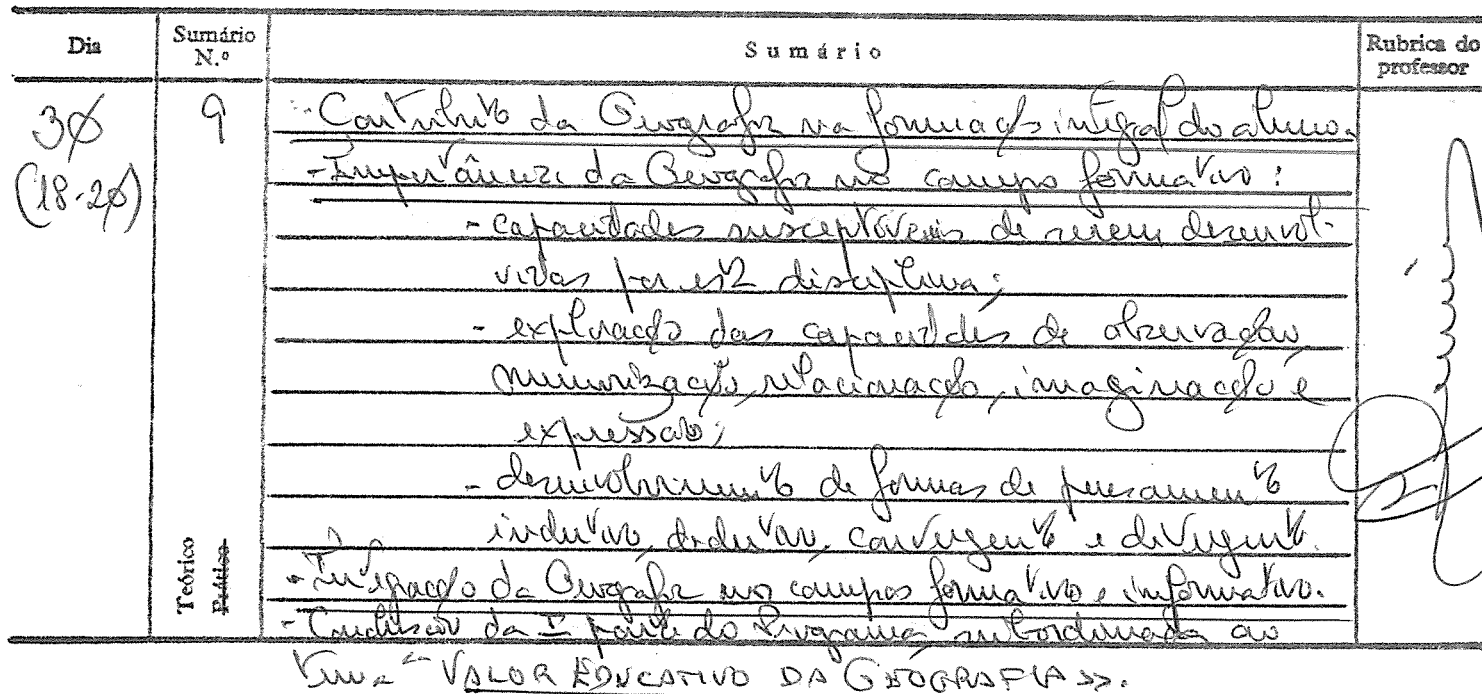 Dia Sumário N.º Sumário Rubrica do professor
30 (18-20) 9
- Contributo da Geografia na formação integral do aluno.
- Importância da Geografia no campo formativo:
- capacidades susceptíveis de serem desenvol-
vidas por esta disciplina;
- exploração das capacidades de observação,
memorização, relacionação, imaginação e
expressão;
- desenvolvimento de formas de pensamento
indutivo, dedutivo, convergente e divergente.
Teórico
Prático
- Integração da Geografia nos campos formativo e informativo.
- Conclusão da Iª parte do Programa, subordinada ao
tema "VALOR EDUCATIVO DA GEOGRAFIA».